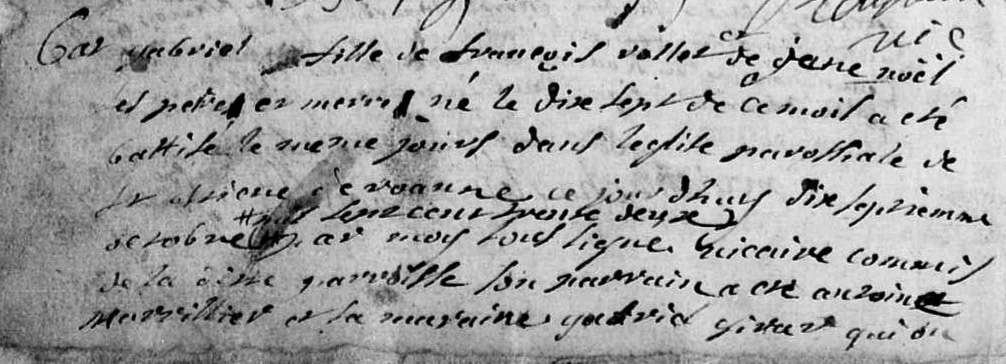 vic
gabriel fille de françois rollet et de jane noël
ses pere et merre né le dixe sept de ce moil a eté
battisé le meme jours dans leglise paroissiale de
st etiene de roanne ce jour dhuy dix septiemme
mil sept cent trente deuxe
octobre par moy sous signe vicaire commis
de la ditte parroisse son parrain a eté antoine
et la maraine gabriel girar qui on